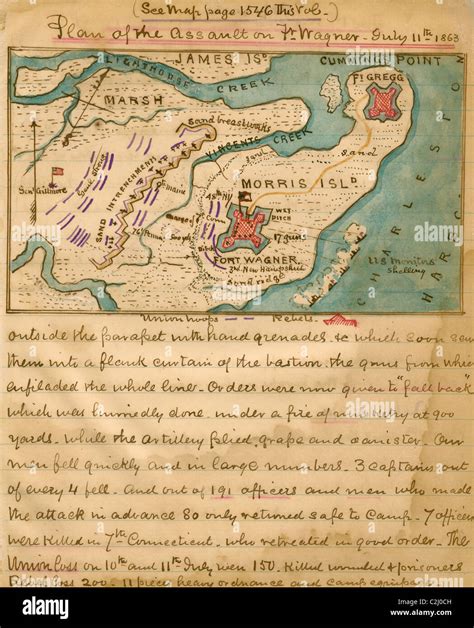 (See Map page 1546 This Vol.)
Plan of the Assault on Ft Wagner - July 11th 1863
JAMES ISD
CUMMINGS POINT
FT GREGG
LIGHTHOUSE CREEK
MARSH
Sand breastworks
VINCENTS CREEK
Sand
MORRIS ISLD
Genl Gillmore
SAND INTRENCHMENT
WET DITCH
17 guns
FORT WAGNER
Sand ridge
CHARLESTON HARBOR
US monitors
Shelling
Union troops
Rebels
outside the parapet with hand grenades, &c which soon sent
them into a flank curtain of the bastion, the guns from which
enfiladed the whole line - Orders were now given to "fall back"
which was hurriedly done, under a fire of musketry at 900
yards, while the artillery plied, grape and canister - Our
men fell quickly and in large numbers. 3 captains out
of every 4 fell - And out of 191 officers and men who made
the attack in advance 80 only returned safe to camp - 7 officers
were killed in 7th Connecticut, who retreated in good order - The
Union loss on 10th and 11th July were 150, killed wounded & prisoners
loss 200 - 11 piece heavy ordnance and camp
alamy
Image ID: C2J0CH
www.alamy.com